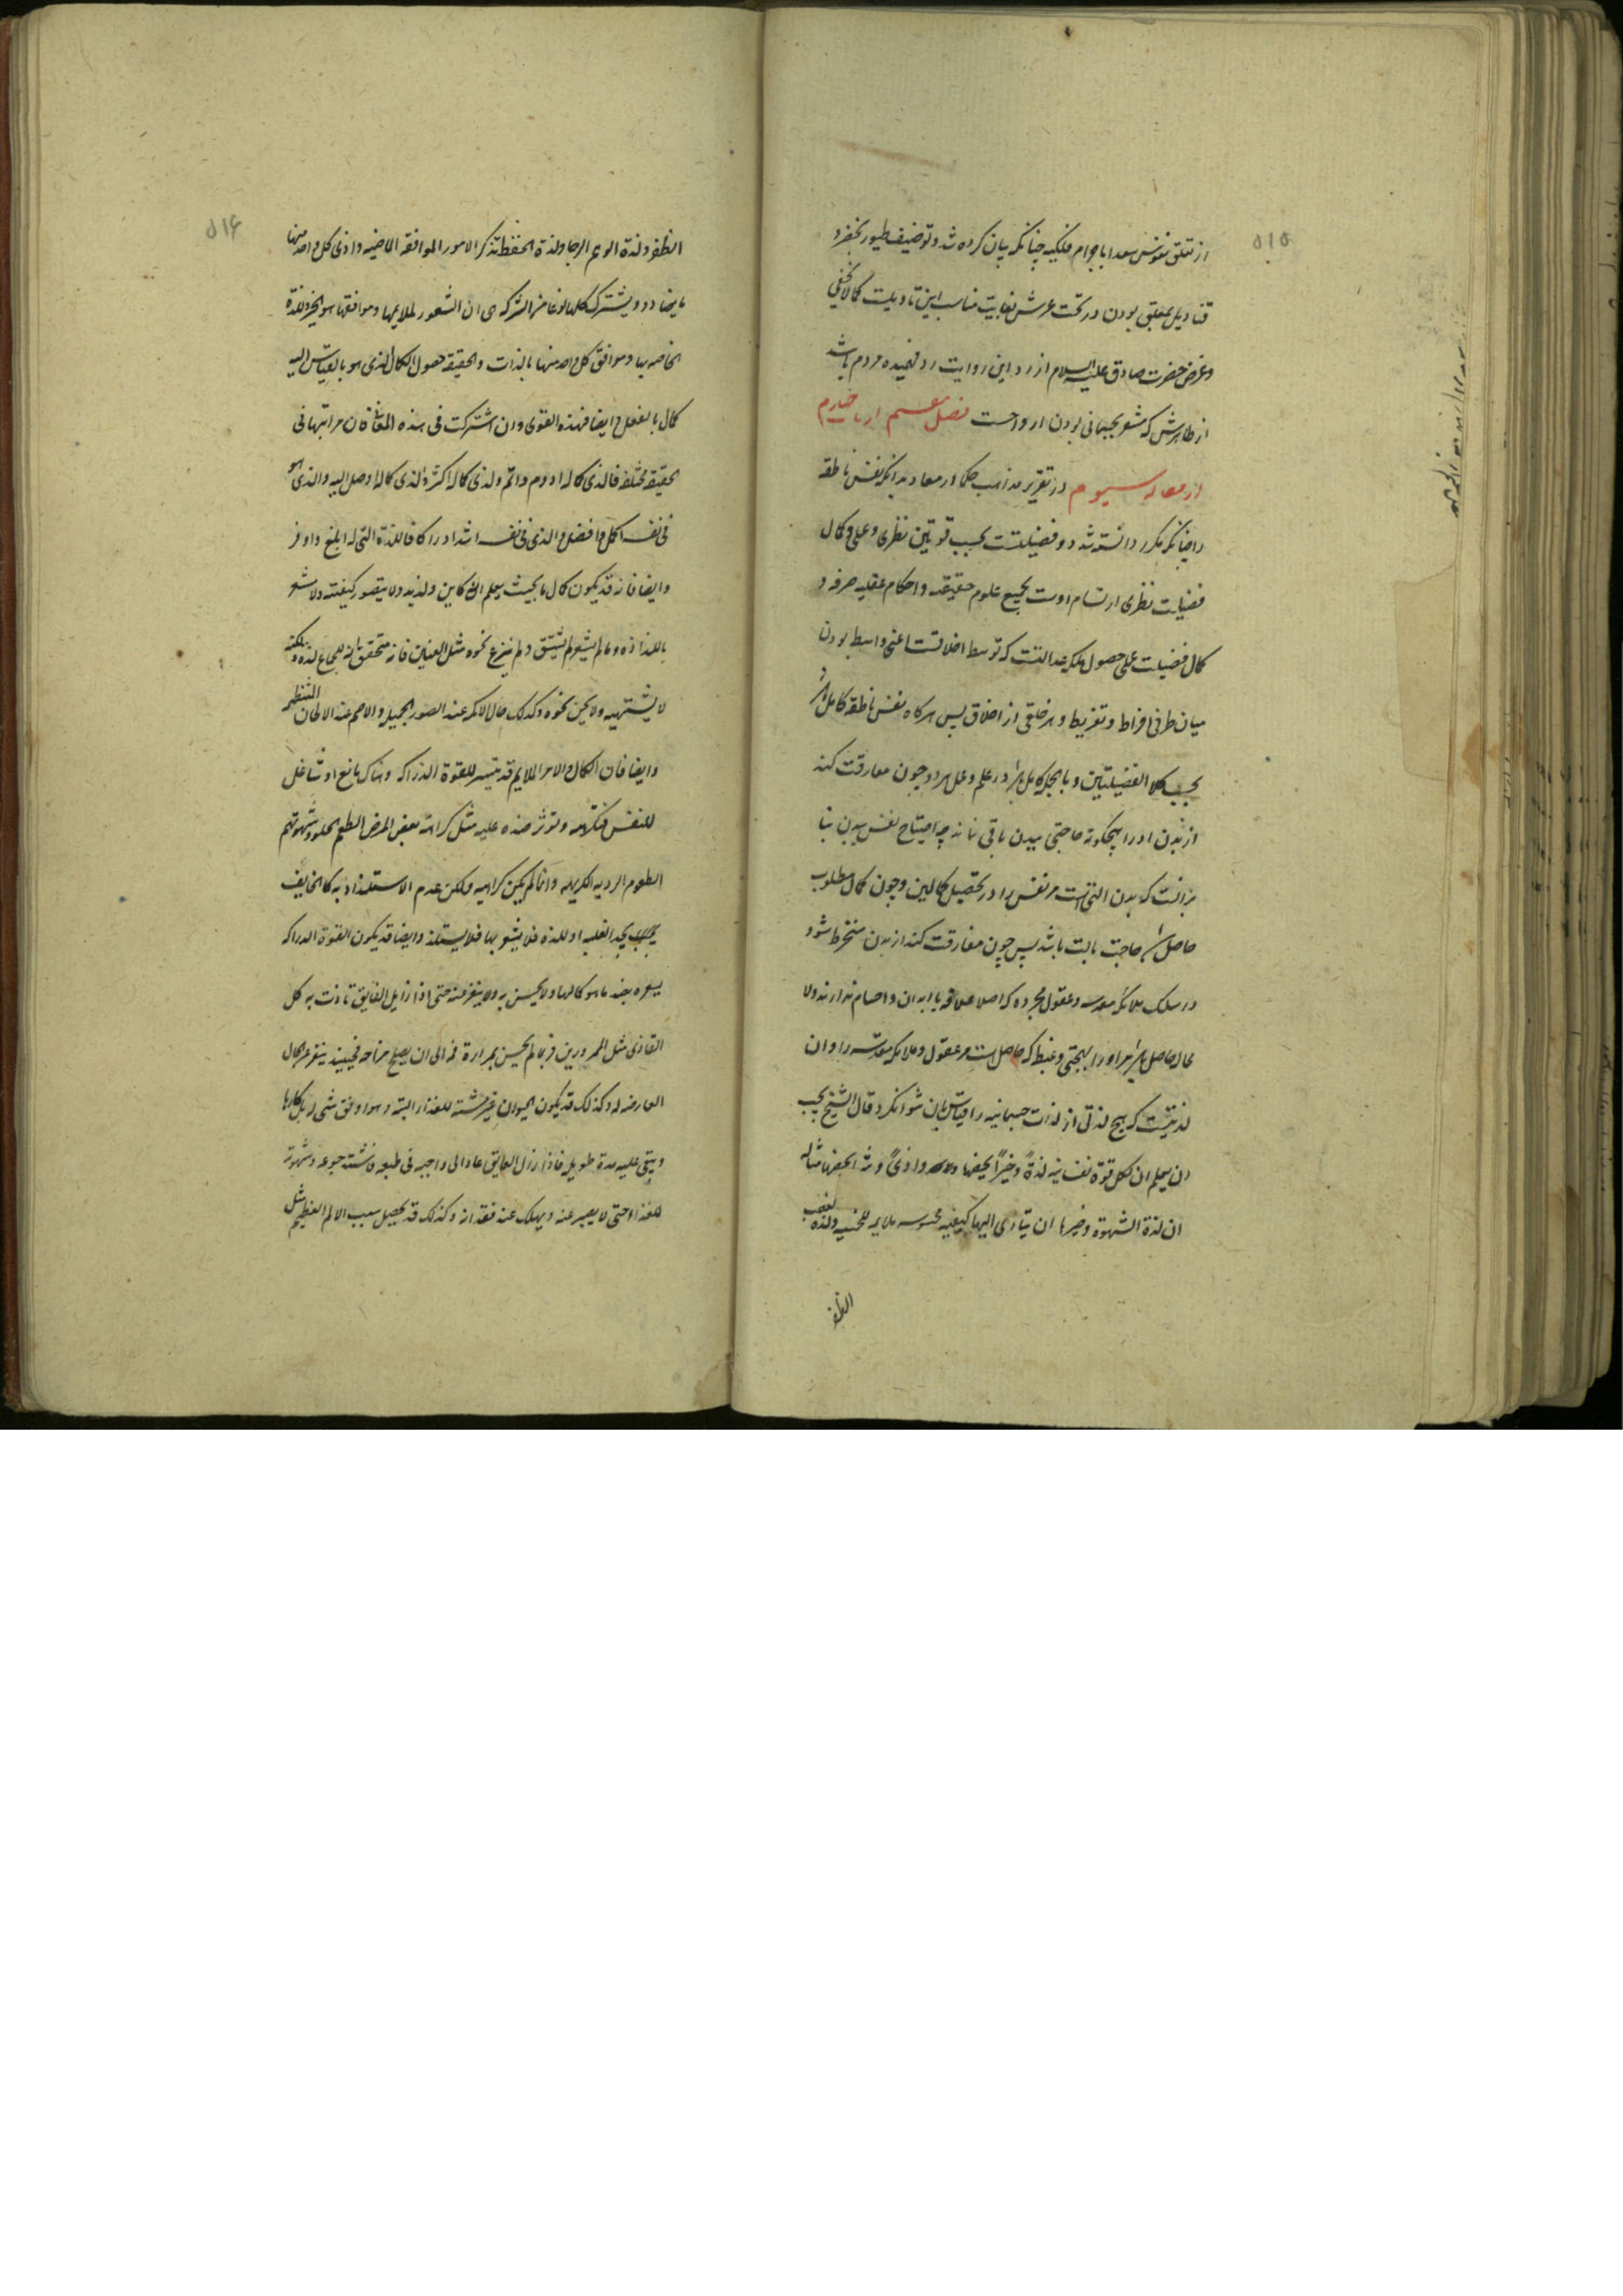 ۵۱۵
از تعلق نفوس سعدا باجرام فلکیه چنانکه بیان کرده شد و توصیف طیور بخضر و
قنادیل بمعلق بودن در تحت عرش بغایت مناسب این تاویلست کما لا یخفی
و غرض حضرت صادق علیه السلام از رد این روایت رد فهمیده مردم باشد
از ظاهرش که مشعر بجسمانی بودن ارواحست فصل هفتم از باب چهارم
از مقاله سیوم در تقریر مذاهب حکما در معاد بدانکه نفس ناطقه
را چنانکه مکرر دانسته شد دو فضیلتست بحسب قوتین نظری و عملی و کمال
فضیلت نظری ارتسام اوست بجمیع علوم حقیقیه و احکام عقلیه صرفه و
کمال فضیلت عملی حصول ملکه عدالتست که توسط اخلاقست اعنی واسط بودن
میان طرفی افراط و تفریط و هر خلقی از اخلاق پس هرگاه نفس ناطقه کامل شد
بحسب کلا الفضیلتین و بالجمله کامل باشد در علم و عمل هر دو چون مفارقت کند
از بدن او را هیچگونه حاجتی ببدن باقی نماند چه احتیاج نفس ببدن بنا
بر آنست که بدن آلتی است مر نفس را در تحصیل کمالین و چون کمال مطلوب
حاصل شد حاجت بالت باشد پس چون مفارقت کند از بدن منخرط شود
در سلک ملائکه مقدسه و عقول مجرده که اصلا علاقه بابدان و اجسام ندارند و لا
محاله حاصل باشد مر او را بهجتی و غبطه که حاصل است مر عقول و ملایکه مقدسه را و ان
لذتیست که هیچ لذتی از لذات جسمانیه را قیاس بان نتوان کرد قال الشیخ یجب
ان یعلم ان لکل قوة نفسانیه لذةً و خیراً یخصها و اذیً و شراً یخصها مثاله
ان لذة الشهوة و خیرها ان یتادی الیها کیفیه محسوسه ملایمه للخمسه و لذة الغضب
الظفر
۵۱۶
الظفر و لذة الوهم الرجا و لذة الحفظ تذکر الامور الموافقه الماضیه و اذی کل واحد منها
ما یضاده و یشترک کلها نوعا من الشرکه فی ان الشعور لملایمها و موافقها هو الخیر و اللذة
الخاصه بها و موافق کل واحد منها بالذات و الحقیقه حصول الکمال الذی هو بالقیاس الیه
کمال بالفعل و ایضا فهذه القوی و ان اشترکت فی هذه المعانی فان مراتبها فی
الحقیقه مختلفه فالذی کماله ادوم و اتم و الذی کماله اکثر و الذی کماله اوصل الیه و الذی هو
فی نفسه اکمل و افضل و الذی فی نفسه اشد ادراکا فاللذة التی له ابلغ و اوفر
و ایضا فانه قد یکون کمال ما بحیث یعلم انه کاین و لذیذ و لا یتصور کیفیته و لا یشعر
باللذاذه و ما لم یشعر لم یشتق و لم ینزع نحوه مثل العنین فانه متحقق ان للجماع لذة و لکنه
لا یشتهیه و لا یحن نحوه و کذلک حال الاکمه عند الصور الجمیله و الاصم عند الالحان المنتظمه
و ایضا فان الکمال و الامر الملایم قد یتیسر للقوة الدراکه و هناک مانع او شاغل
للنفس فتکرهه و توثر ضده علیه مثل کراهه بعض المرضی الطعم الحلو و شهوتهم
الطعوم الردیه الکریهه و انما لم یکن کراهیه و لکن عدم الاستلذاذ به کالخایف
یجد الغلبه او اللذه فلا یشعر بها فلا یستلذ و ایضا قد یکون القوة الدراکه
بضد ما هو کمالها و لا یحس به و لا ینفر منه حتی اذا زایل العایق تاذت به کل
التاذی مثل الممرورین فربما لم یحس بمرارة فمه الی ان یصلح مزاجه فحینئذ ینفر عن الحال
العارضه له و کذلک قد یکون الحیوان غیر مشته للغذاء البته و هو اوفق شی له بل کارها
و یبقی علیه مدة طویله فاذا زال العایق عاد الی واجبه فی طبعه فاشتد جوعه و شهوته
للغذاء حتی لا یصبر عنه و یهلک عند فقدانه و کذلک قد یحصل سبب الالم العظیم مثل